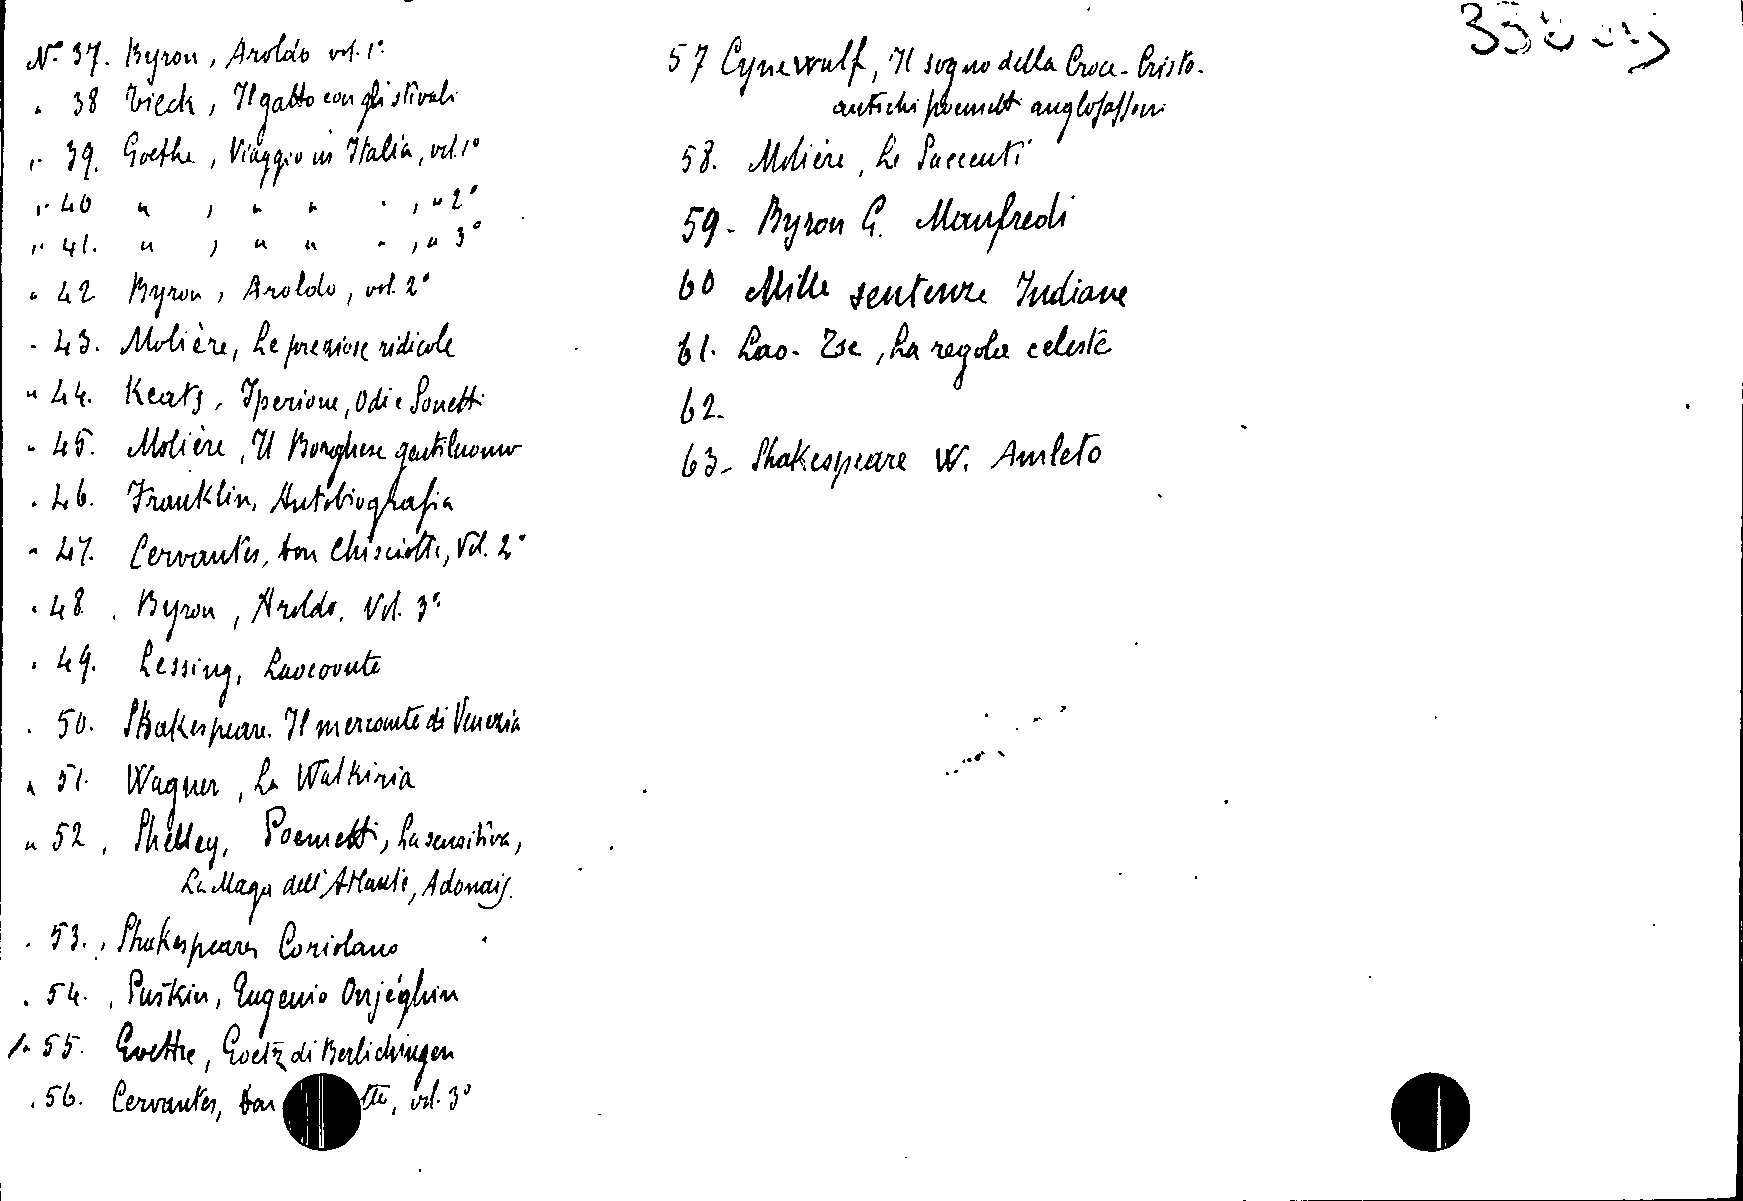 N° 37. Byron, Aroldo vol. 1°
" 38 Tieck, Il gatto con gli stivali
" 39. Goethe, Viaggio in Italia, vol. 1°
" 40 " , " " " , " 2°
" 41. " , " " " , " 3°
" 42 Byron, Aroldo, vol. 2°
" 43. Molière, Le preziose ridicole
" 44. Keats, Iperione, Odi e Sonetti
" 45. Molière, Il Borghese gentiluomo
" 46. Franklin, Autobiografia
" 47. Cervantes, Don Chisciotte, Vol. 2°
" 48. Byron, Aroldo, Vol. 3°
" 49. Lessing, Laocoonte
" 50. Shakespeare. Il mercante di Venezia
" 51. Wagner, La Walkiria
" 52, Shelley, Poemetti, La sensitiva,
La Maga dell'Atlante, Adonais.
" 53., Shakespeare, Coriolano
" 54., Puškin, Eugenio Onjéghin
" 55. Goethe, Goetz di Berlichingen
" 56. Cervantes, Don tte, vol. 3°
57 Cynewulf, Il sogno della Croce - Cristo -
antichi poemetti anglosassoni
58. Molière, Le Saccenti
59 - Byron G. Manfredi
60 Mille sentenze Indiane
61. Lao-Tse, La regola celeste
62.
63 - Shakespeare W. Amleto